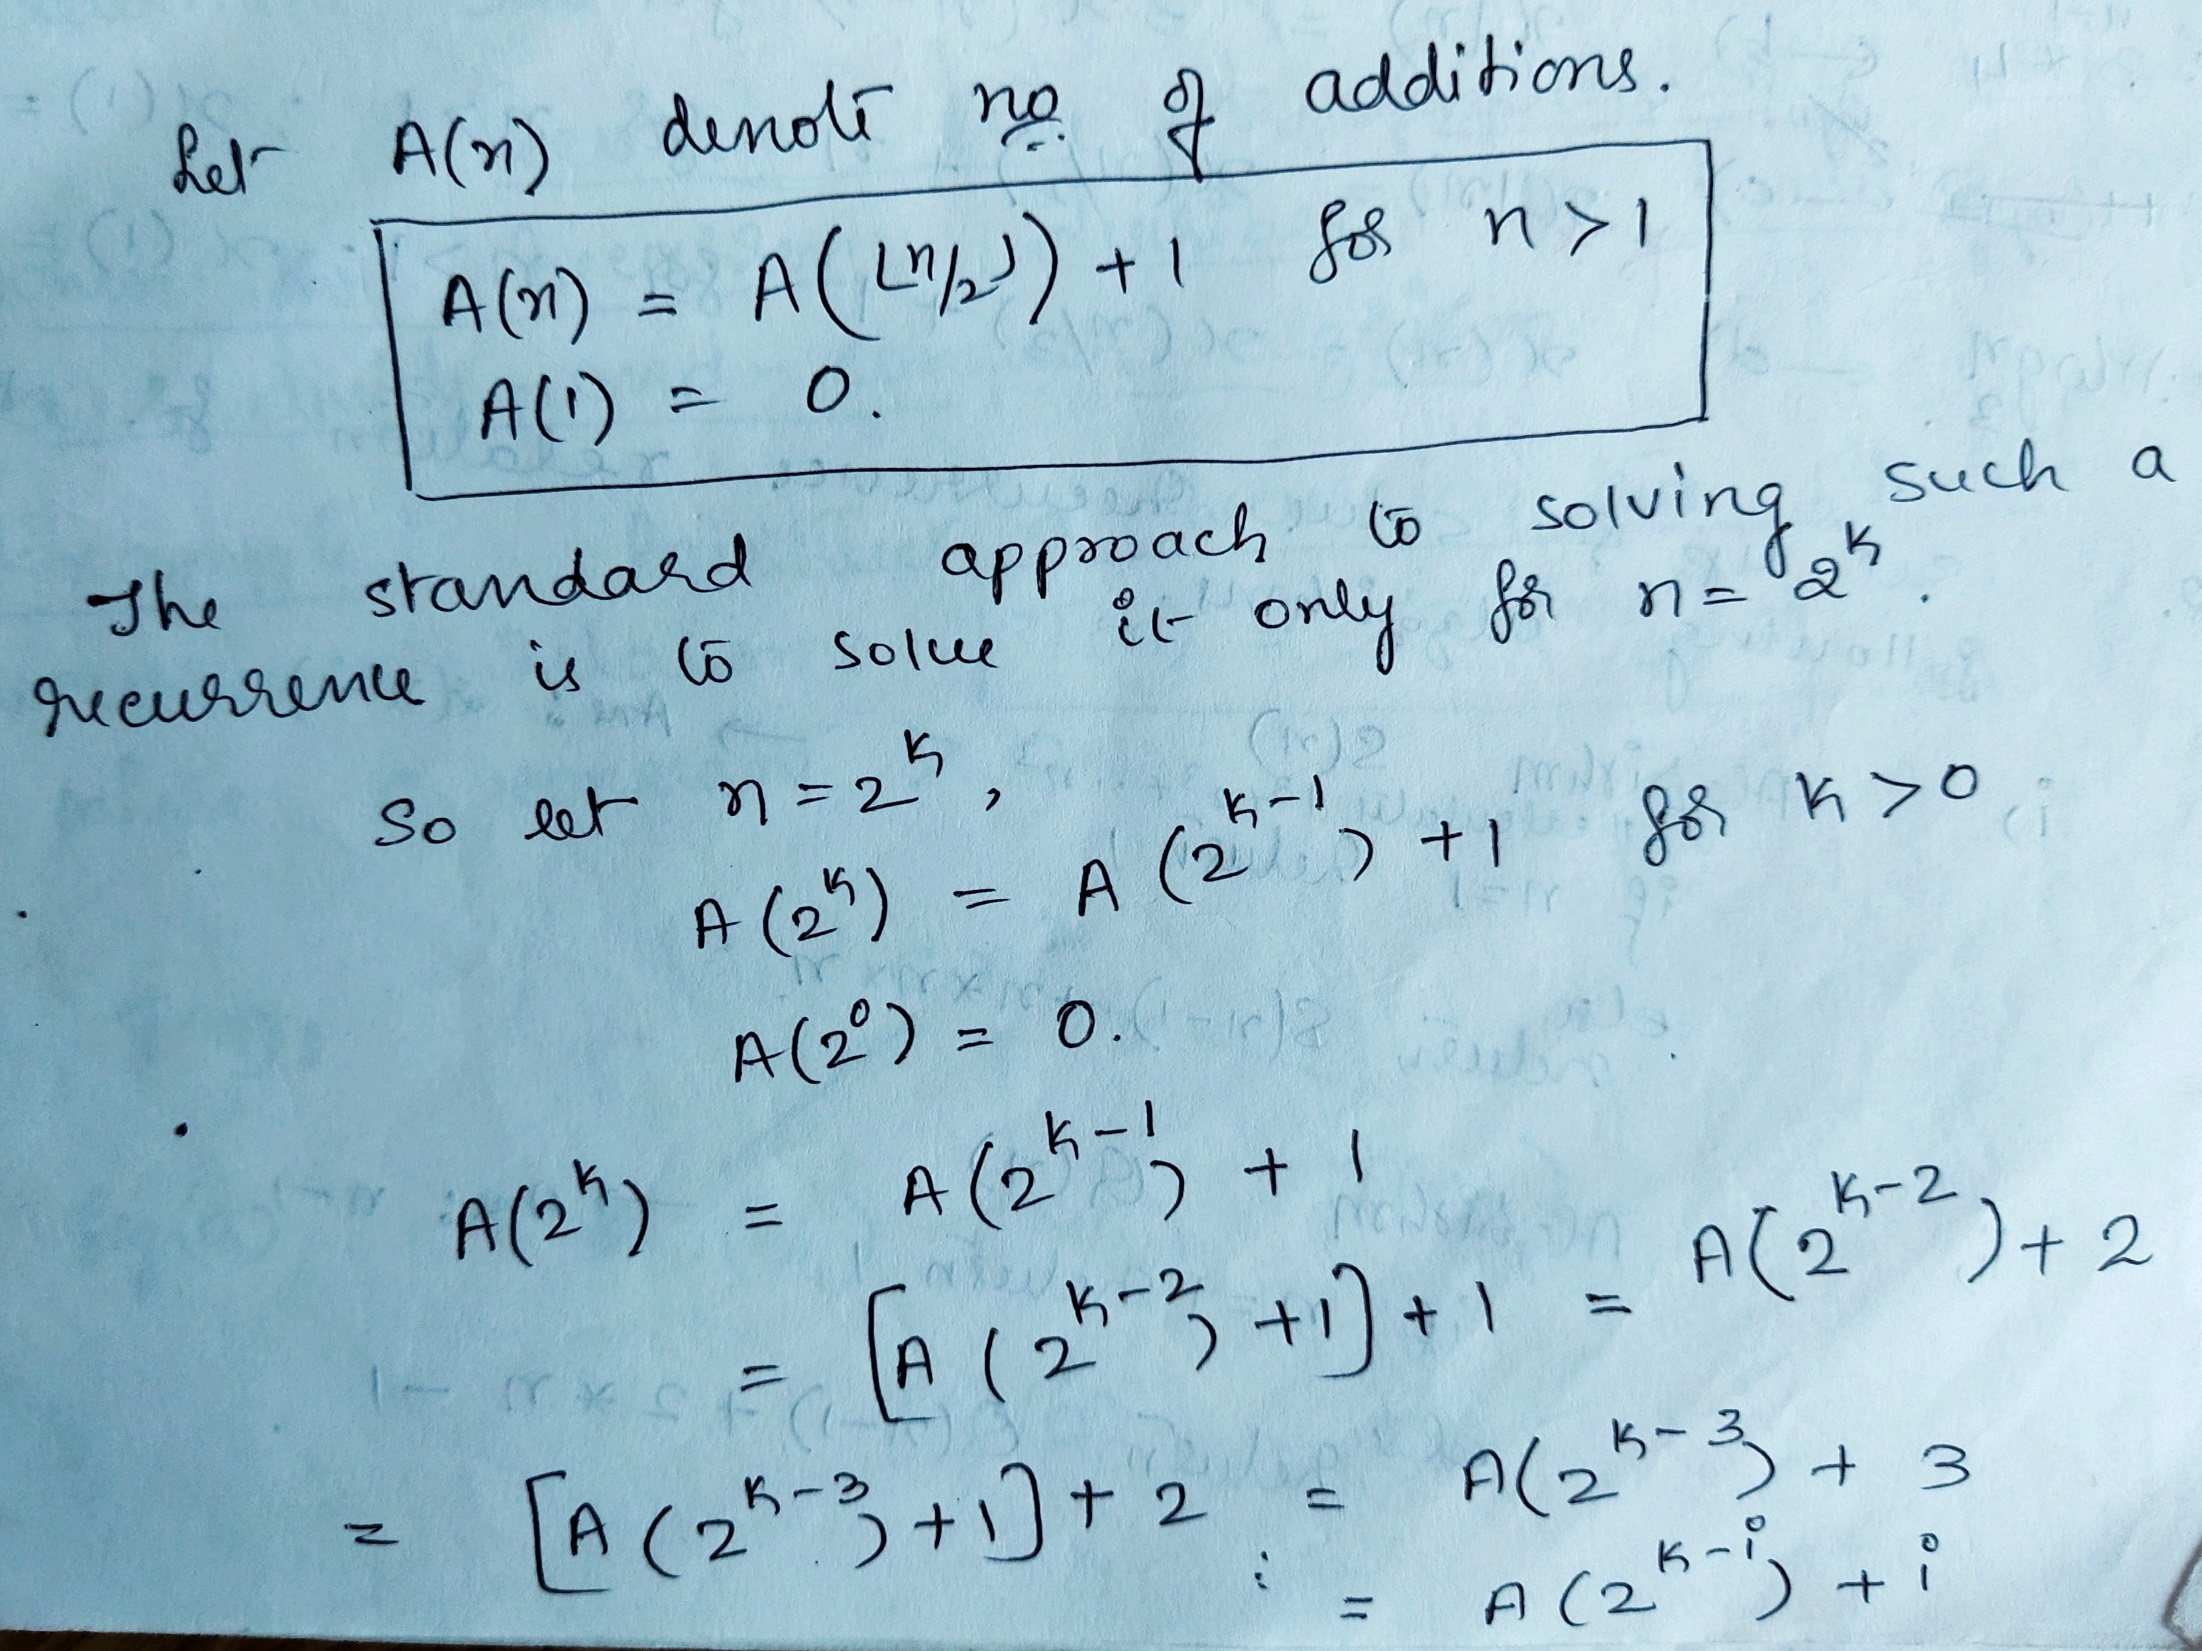 Let A(n) denote no. of additions.
A(n) = A(⌊n/2⌋) + 1 for n > 1
A(1) = 0.
The standard approach to solving such a
recurrence is to solve it only for n = 2^k.
So let n = 2^k,
A(2^k) = A(2^k-1) + 1 for k > 0
A(2^0) = 0.
A(2^k) = A(2^k-1) + 1
= [A(2^k-2) + 1] + 1 = A(2^k-2) + 2
= [A(2^k-3) + 1] + 2 = A(2^k-3) + 3
⋮ = A(2^k-i) + i